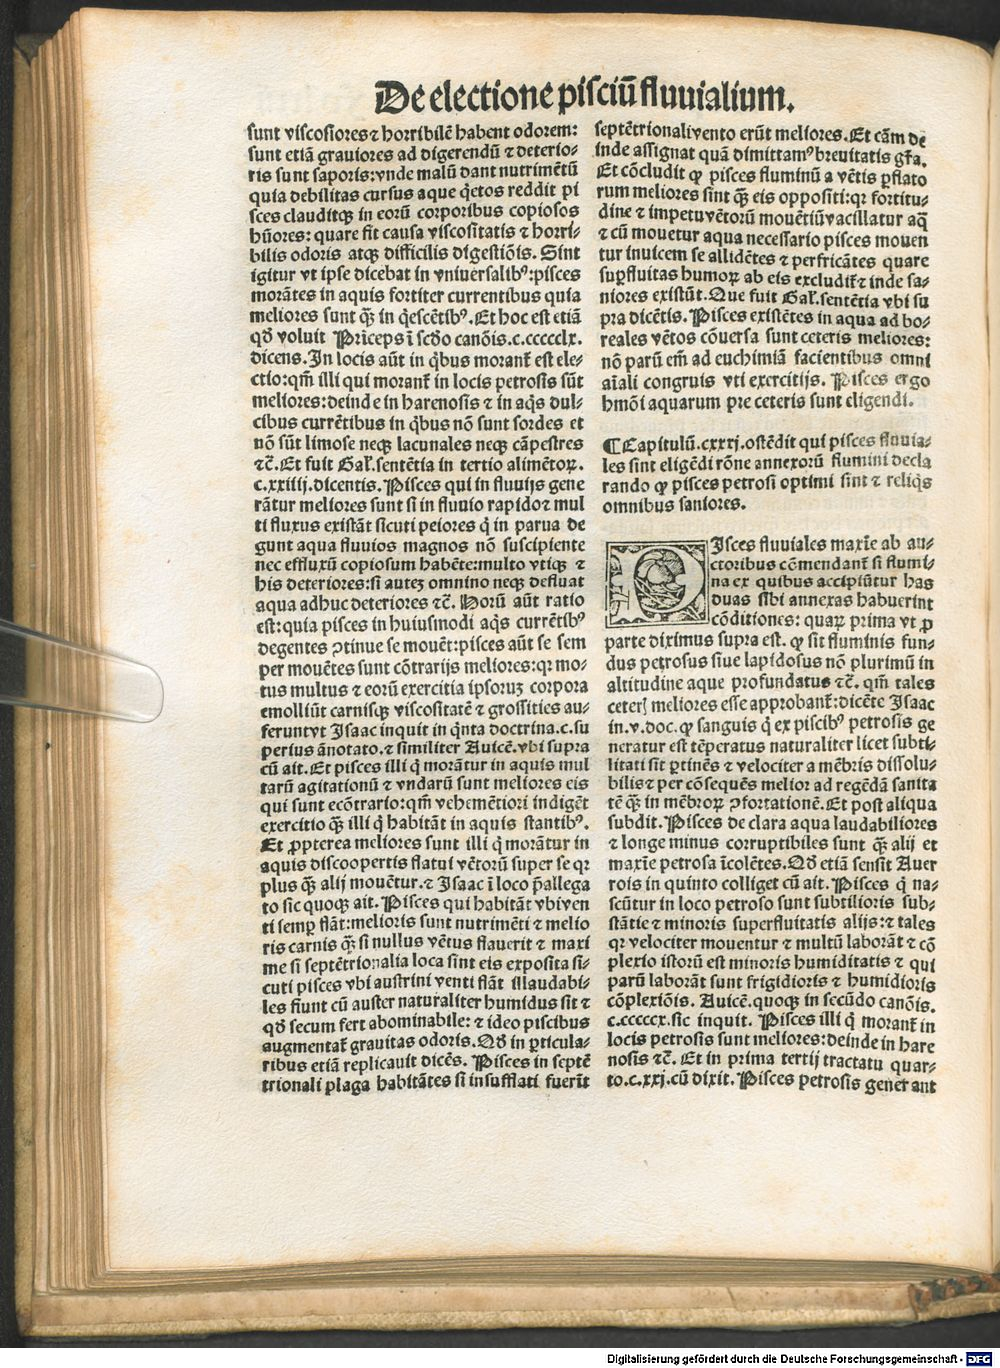 De electione pisciū fluuialium.
sunt viscosiores ⁊ horribilē habent odorem:
sunt etiā grauiores ad digerendū ⁊ deterio⸗
ris sunt saporis: vnde malū dant nutrimētū
quia debilitas cursus aque q̇etos reddit pi
sces clauditqꝫ in eorū corporibus copiosos
hūores: quare fit causa viscositatis ⁊ horri⸗
bilis odoris atqꝫ difficilis digestiōis. Sint
igitur vt ipse dicebat in vniuersalibꝰ: pisces
morātes in aquis fortiter currentibus quia
meliores sunt q̄ꝫ in q̇escētibꝰ. Et hoc est etiā
qd̄ voluit Prīceps ī scd̄o canōis.c.cccccclx.
dicens. In locis aūt in q̇bus morant̄ est ele⸗
ctio: qm̄ illi qui morant̄ in locis petrosis sūt
meliores: deinde in harenosis ⁊ in aq̇s dul⸗
cibus currētibus in q̇bus nō sunt sordes et
nō sūt limose neqꝫ lacunales neqꝫ cāpestres
⁊c̄. Et fuit Gal̄. sentētia in tertio alimētoꝝ.
c.xxiiij. dicentis. Pisces qui in fluuijs gene
rātur meliores sunt si in fluuio rapido ⁊ mul
ti fluxus existāt sicuti peiores q̇ in parua de
gunt aqua fluuios magnos nō suscipiente
nec effluxū copiosum habēte: multo vtiqꝫ ⁊
his deteriores: si auteꝫ omnino neqꝫ defluat
aqua adhuc deteriores ⁊c̄. Horū aūt ratio
est: quia pisces in huiusmodi aq̇s currētibꝰ
degentes ꝯtinue se mouēt: pisces aūt se sem
per mouētes sunt cōtrarijs meliores: qꝛ mo⸗
tus multus ⁊ eorū exercitia ipsoruꝫ corpora
emolliūt carnisqꝫ viscositatē ⁊ grossities au⸗
ferunt vt Isaac inquit in q̇nta doctrina.c. su
perius ānotato. ⁊ similiter Auicē. vbi supra
cū ait. Et pisces illi q̇ morātur in aquis mul
tarū agitationū ⁊ vndarū sunt meliores eis
qui sunt ecōtrario: qm̄ vehemētiori indigēt
exercitio q̄ꝫ illi q̇ habitāt in aquis stantibꝰ.
Et ꝓpterea meliores sunt illi q̇ morātur in
aquis discoopertis flatui vētorū super se qꝛ
plus q̄ꝫ alij mouētur. ⁊ Isaac ī loco p̄allega
to sic quoqꝫ ait. Pisces qui habitāt vbi ven
ti semꝑ flāt: melioris sunt nutrimēti ⁊ melio
ris carnis q̄ꝫ si nullus vētus flauerit ⁊ maxi
me si septētrionalia loca sint eis exposita si⸗
cuti pisces vbi austrini venti flāt illaudabi⸗
les fiunt cū auster naturaliter humidus sit ⁊
qd̄ secum fert abominabile: ⁊ ideo piscibus
augmentat̄ grauitas odoris. Qd̄ in ꝑticula⸗
ribus etiā replicauit dicēs. Pisces in septē
trionali plaga habitātes si insufflati fuerīt
septētrionali vento erūt meliores. Et cām de
inde assignat quā dimittamꝰ breuitatis gr̄a.
Et cōcludit ꝙ pisces fluminū a vētis ꝑflato
rum meliores sint q̄ꝫ eis oppositi: qꝛ fortitu⸗
dine ⁊ impetu vētorū mouētiū vacillatur aq̄
⁊ cū mouetur aqua necessario pisces mouen
tur inuicem se allidētes ⁊ perfricātes quare
suꝑfluitas humoꝝ ab eis excludit̄ ⁊ inde sa⸗
niores existūt. Que fuit Gal̄. sentētia vbi su
pra dicētis. Pisces existētes in aqua ad bo⸗
reales vētos cōuersa sunt ceteris meliores:
nō parū em̄ ad euchimiā facientibus omni
aīali congruis vti exercitijs. Pisces ergo
hmōi aquarum pre ceteris sunt eligendi.
¶Capitulū.cxxxj. ostēdit qui pisces fluuia⸗
les sint eligēdi rōne annexorū flumini decla
rando ꝙ pisces petrosi optimi sint ⁊ reliq̇s
omnibus saniores.
PIsces fluuiales maxīe ab au⸗
ctoribus cōmendant̄ si flumi⸗
na ex quibus accipiūtur has
duas sibi annexas habuerint
cōditiones: quaꝝ prima vt ꝓ
parte diximus supra est. ꝙ sit fluminis fun⸗
dus petrosus siue lapidosus nō plurimū in
altitudine aque profundatus ⁊c̄. qm̄ tales
ceterꝭ meliores esse approbant̄: dicēte Isaac
in.v.doc. ꝙ sanguis q̇ ex piscibꝰ petrosis ge
neratur est tēperatus naturaliter licet subti⸗
litati sit ꝑtinēs ⁊ velociter a mēbris dissolu⸗
bilis ⁊ per cōsequēs melior ad regēdā sanita
tē q̄ꝫ in mēbroꝝ ꝯfortationē. Et post aliqua
subdit. Pisces de clara aqua laudabiliores
⁊ longe minus corruptibiles sunt q̄ꝫ alij et
maxīe petrosa īcolētes. Qd̄ etiā sensit Auer
rois in quinto colliget cū ait. Pisces q̇ na⸗
scūtur in loco petroso sunt subtilioris sub⸗
stātie ⁊ minoris superfluitatis alijs: ⁊ tales
qꝛ velociter mouentur ⁊ multū laborāt ⁊ cō
plexio istorū est minoris humiditatis ⁊ qui
parū laborāt sunt frigidioris ⁊ humidioris
cōplexiōis. Auicē. quoqꝫ in secūdo canōis.
c.cccccx. sic inquit. Pisces illi q̇ morant̄ in
locis petrosis sunt meliores: deinde in hare
nosis ⁊c̄. Et in prima tertij tractatu quar⸗
to.c.xxj. cū dixit. Pisces petrosis generant
Digitalisierung gefördert durch die Deutsche Forschungsgemeinschaft - DFG